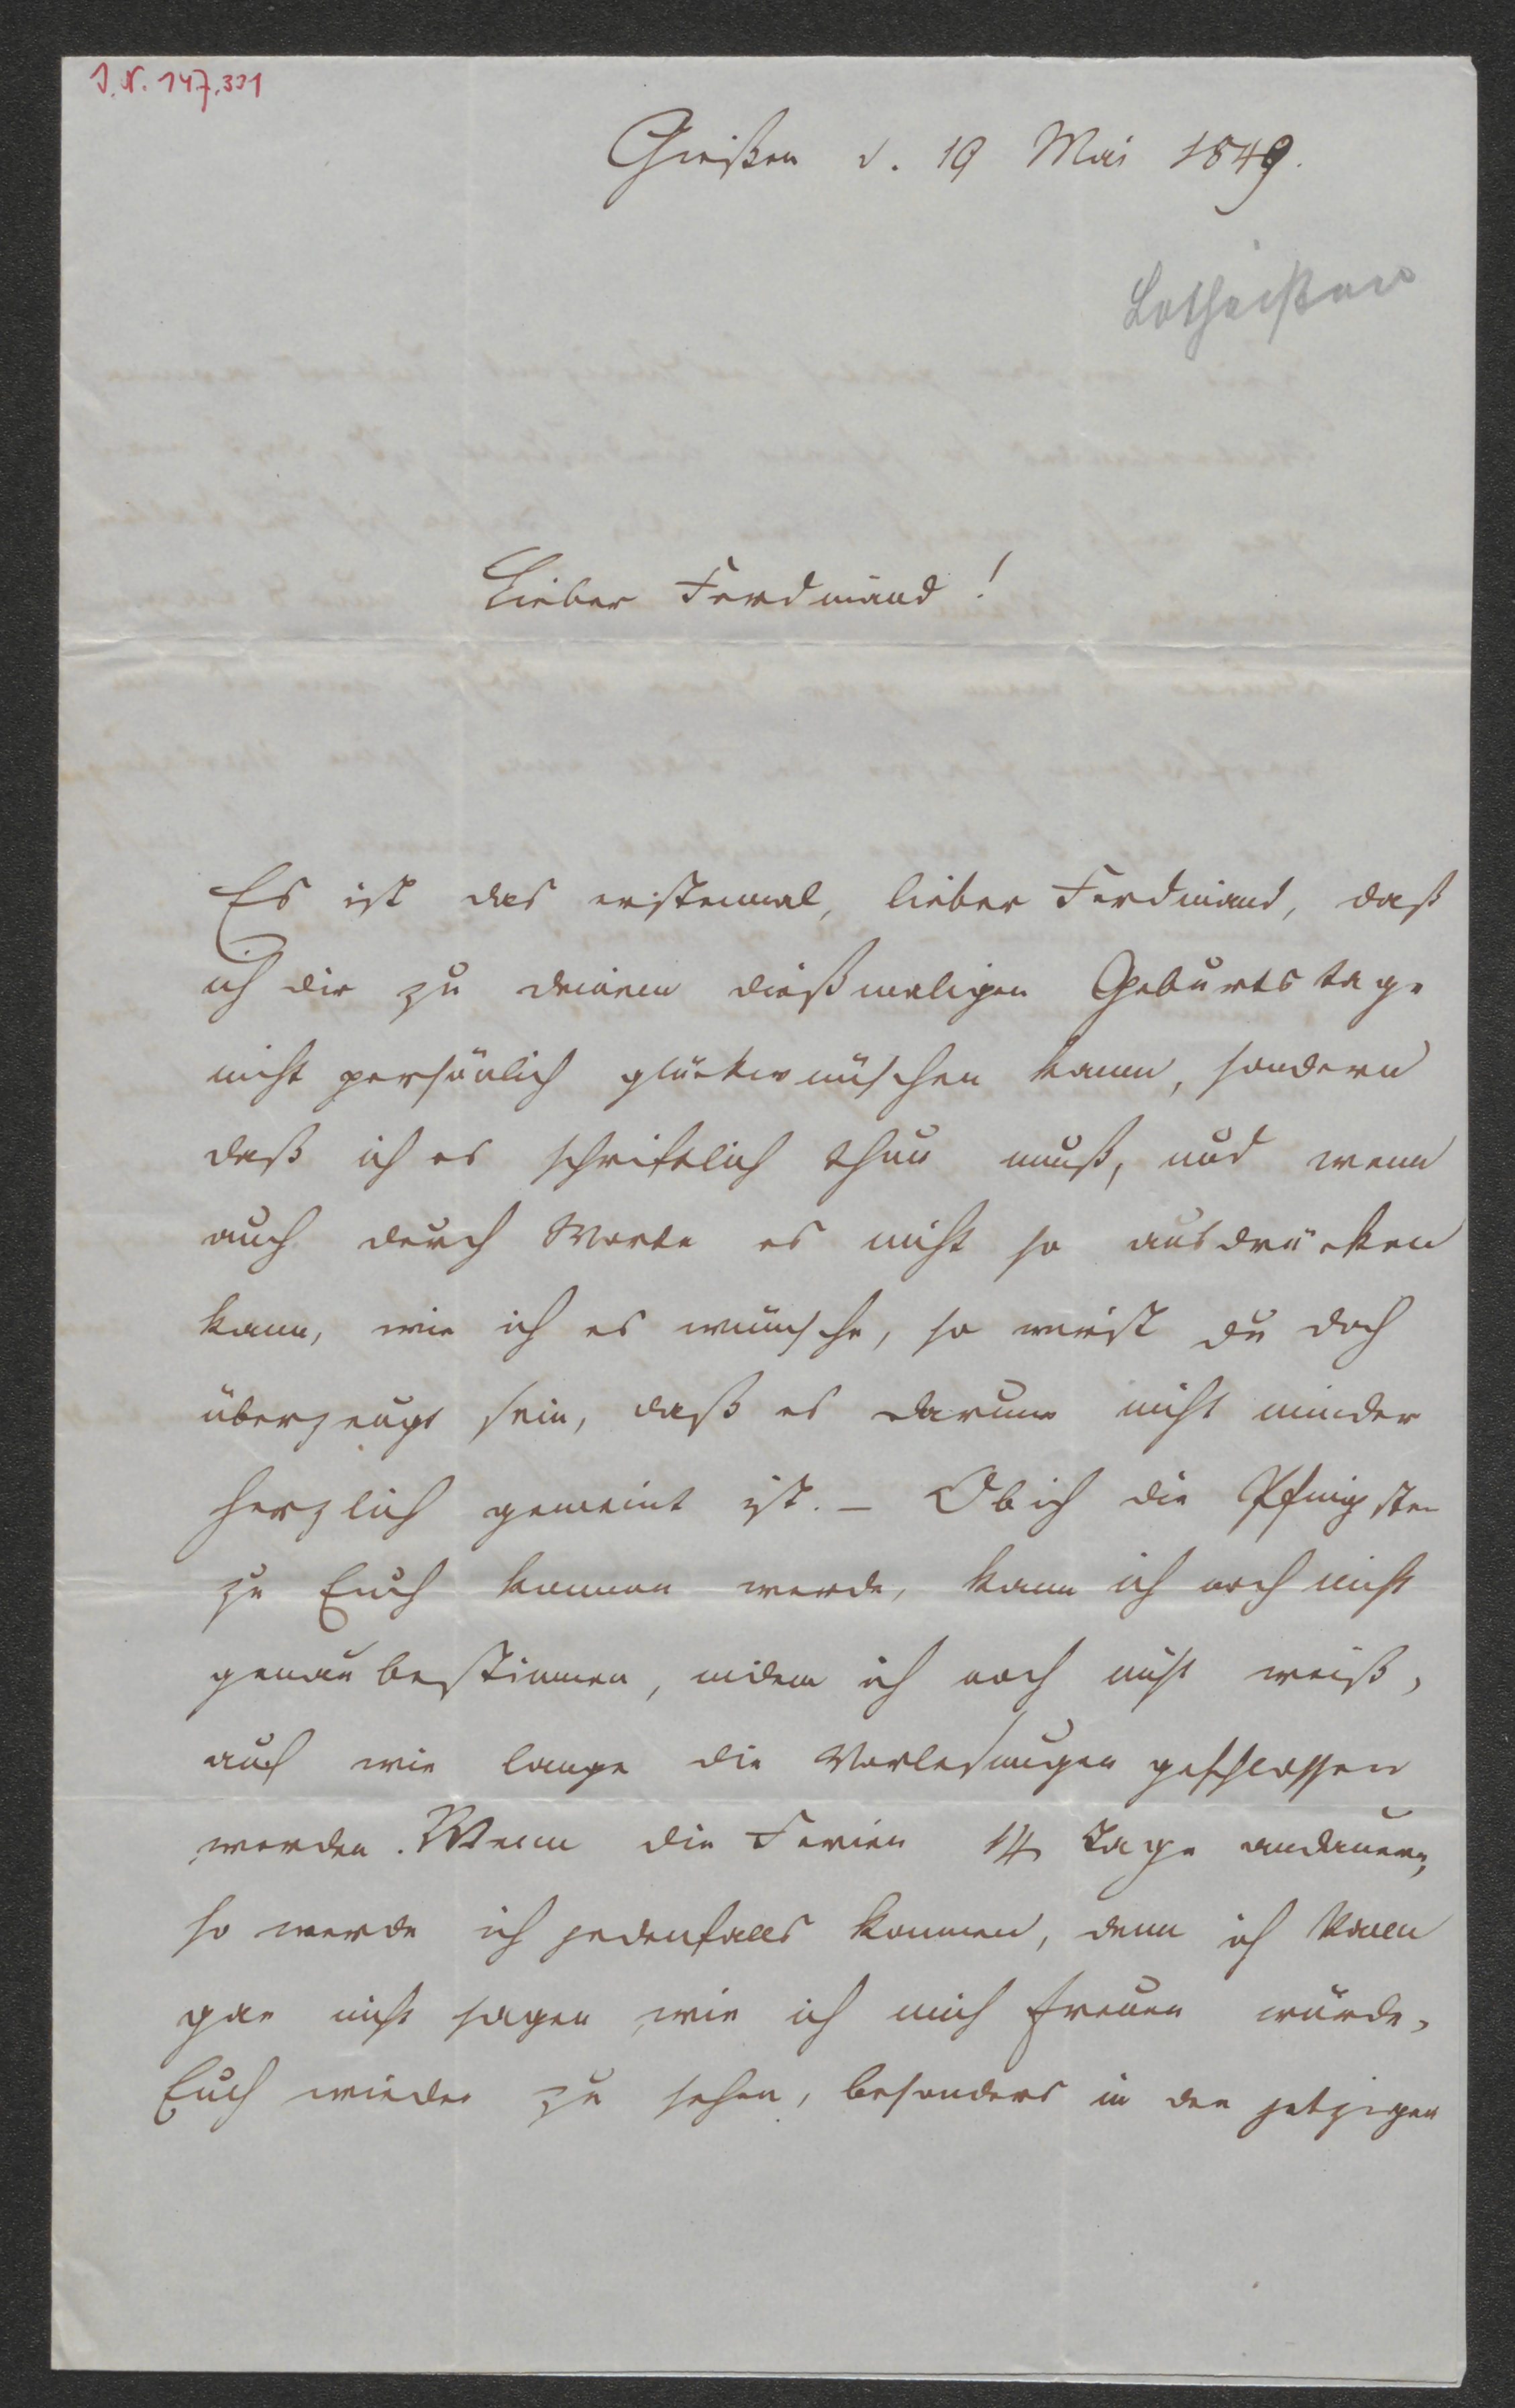 I. N. 147.331
Gießen d. 19 Mai 1849.
Lotheißen
Lieber Ferdinand!
Es ist das erstemal, lieber Ferdinand, daß
ich dir zu deinem dießmaligen Geburtstage
nicht persönlich glückwünschen kann, sondern
daß ich es schriftlich thun muß, und wenn
auch durch Worte es nicht so ausdrücken
kann, wie ich es wünsche, so wirst du doch
überzeugt sein, daß es darum nicht minder
herzlich gemeint ist. – Ob ich die Pfingsten
zu Euch kommen werde, kann ich noch nicht
genau bestimmen, indem ich noch nicht weiß,
auf wie lange die Vorlesungen geschlossen
werden. Wenn die Ferien 14 Tage andauern,
so werde ich jedenfalls kommen, denn ich kann
gar nicht sagen wie ich mich freuen würde,
Euch wieder zu sehen, besonders in den jetzigen